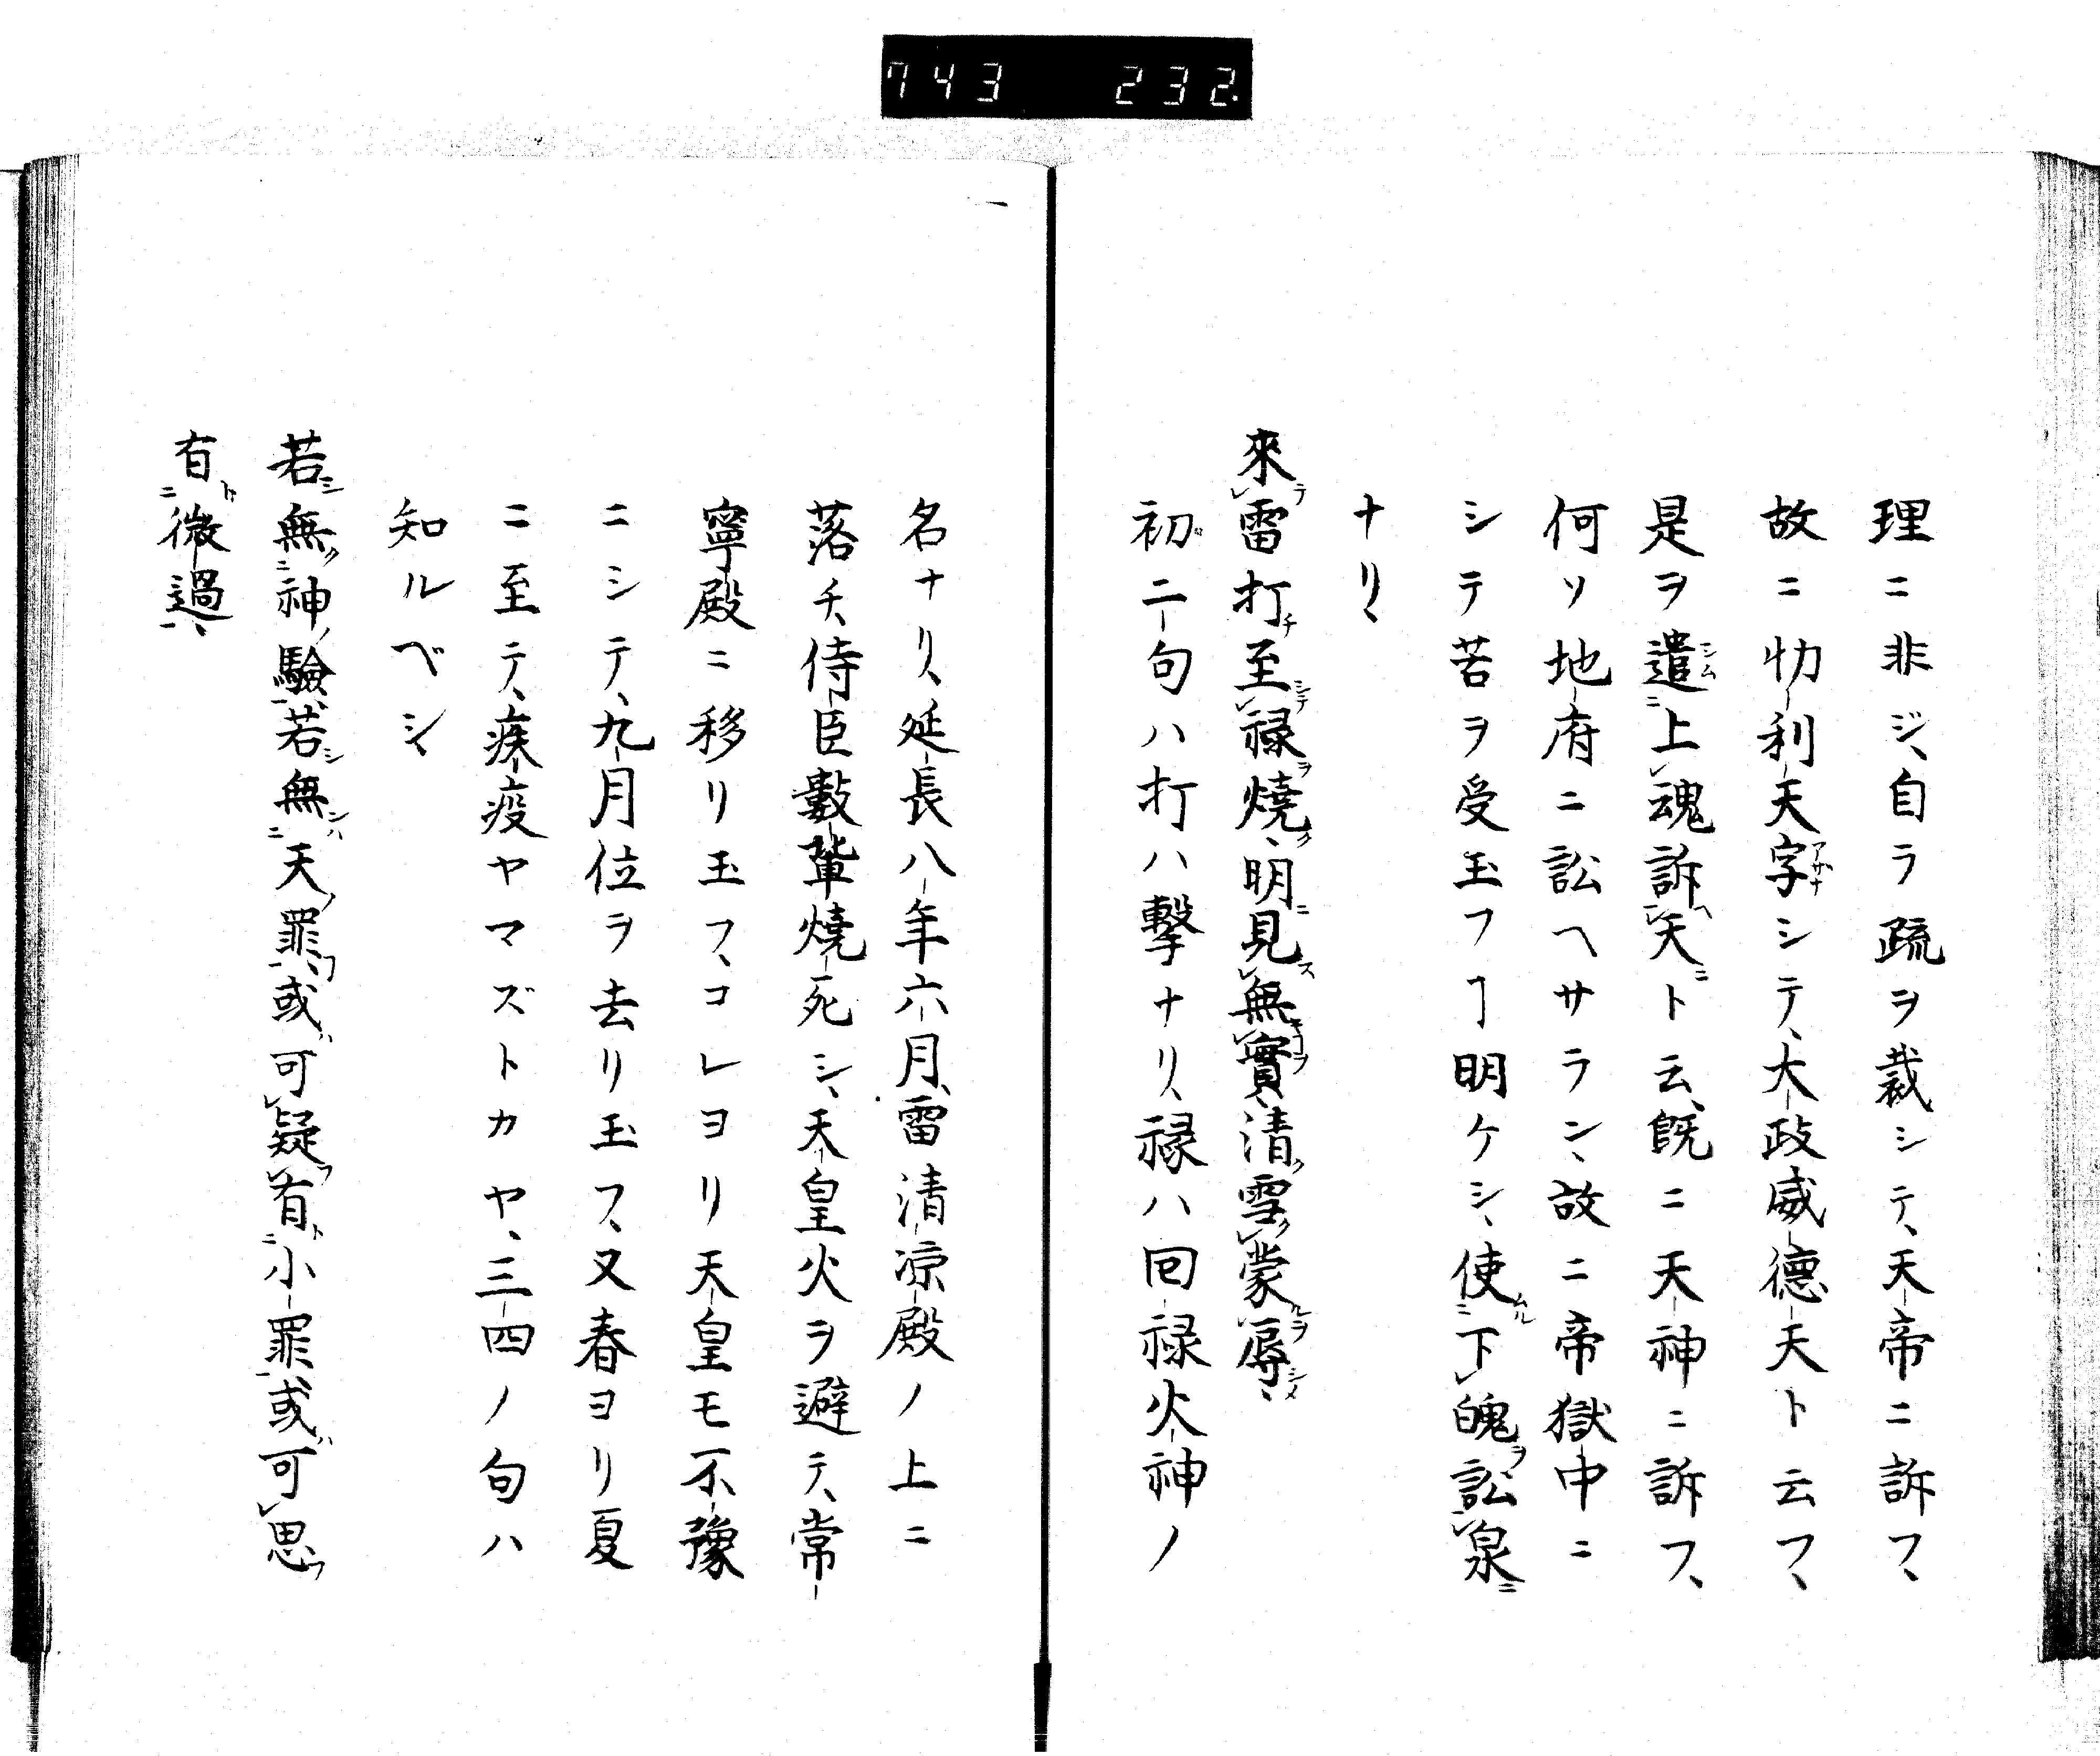 743 232.
理ニ非ジ、自ラ疏ヲ裁シテ、天帝ニ訴フ、
故ニ忉利天字シテ、大政威德天ト云フ、
是ヲ遣上魂訴天ト云、既ニ天神ニ訴フ、
何ソ地府ニ訟ヘサラン、故ニ帝獄中ニ
シテ苦ヲ受玉フヿ明ケシ、使下魄訟泉
ナリ、
來雷打至祿燒、明見無實清雪蒙辱、
初二句ハ打ハ擊ナリ、祿ハ回祿火神ノ
名ナリ、延長八年六月、雷清凉殿ノ上ニ
落チ、侍臣數輩燒死シ、天皇火ヲ避テ、常
寧殿ニ移リ玉フ、コレヨリ天皇モ不豫
ニシテ、九月位ヲ去リ玉フ、又春ヨリ夏
ニ至テ、疾疫ヤマズトカヤ、三四ノ句ハ
知ルベシ、
若無神驗、若無天罪、或可疑有小罪、或可思
有微過、